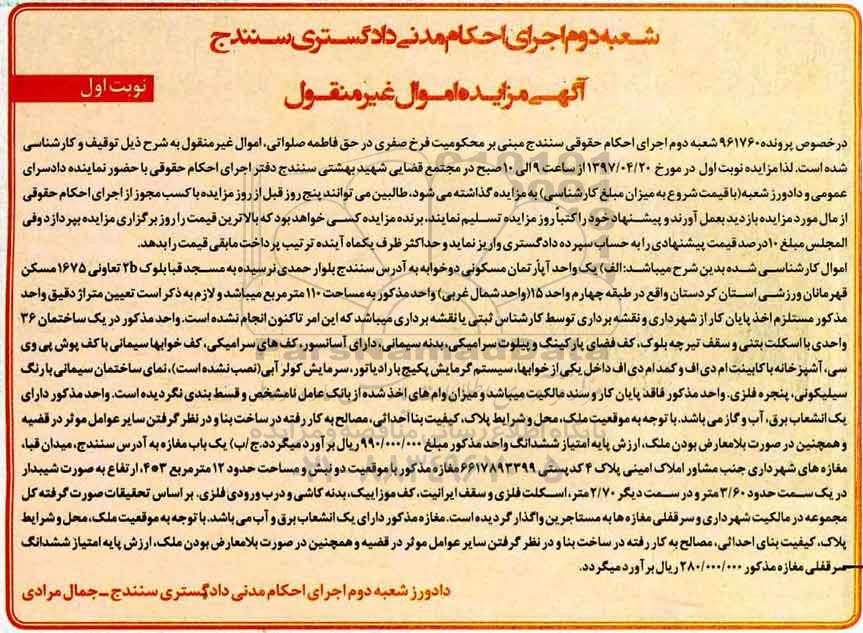 شعبه دوم اجرای احکام مدنی دادگستری سنندج
آگهی مزایده اموال غیر منقول
نوبت اول
درخصوص پرونده ۹۶۱۷۶۰ شعبه دوم اجرای احکام حقوقی سنندج مبنی بر محکومیت فرخ صفری در حق فاطمه صلواتی، اموال غیر منقول به شرح ذیل توقیف و کارشناسی
شده است. لذا مزایده نوبت اول در مورخ ۱۳۹۷/۰۴/۲۰ از ساعت ۹ الی ۱۰ صبح در مجتمع قضایی شهید بهشتی سنندج دفتر اجرای احکام حقوقی با حضور نماینده دادسرای
عمومی و دادورز شعبه (با قیمت شروع به میزان مبلغ کارشناسی) به مزایده گذاشته می شود، طالبین می توانند پنج روز قبل از روز مزایده با کسب مجوز از اجرای احکام حقوقی
از مال مورد مزایده بازدید بعمل آورند و پیشنهاد خود را کتباً روز مزایده تسلیم نمایند، برنده مزایده کسی خواهد بود که بالاترین قیمت را روز برگزاری مزایده بپردازد وفی
المجلس مبلغ ۱۰درصد قیمت پیشنهادی را به حساب سپرده دادگستری واریز نماید و حداکثر ظرف یکماه آینده ترتیب پرداخت مابقی قیمت را بدهد.
اموال کارشناسی شده بدین شرح میباشد: الف) یک واحد آپارتمان مسکونی دوخوابه به آدرس سنندج بلوار حمدی نرسیده به مسجد قبا بلوک ۲b تعاونی ۱۶۷۵ مسکن
قهرمانان ورزشی استان کردستان واقع در طبقه چهارم واحد ۱۵ (واحد شمال غربی) واحد مذکور به مساحت ۱۱۰ متر مربع میباشد و لازم به ذکر است تعیین متراژ دقیق واحد
مذکور مستلزم اخذ پایان کار از شهرداری و نقشه برداری توسط کارشناس ثبتی یا نقشه برداری میباشد که این امر تاکنون انجام نشده است. واحد مذکور در یک ساختمان ۳۶
واحدی با اسکلت بتنی و سقف تیرچه بلوک، کف فضای پارکینگ و پیلوت سرامیکی، بدنه سیمانی، دارای آسانسور، کف های سرامیکی، کف خوابها سیمانی با کف پوش پی وی
سی، آشپزخانه با کابینت ام دی اف و کمد ام دی اف داخل یکی از خوابها، سیستم گرمایش پکیج با رادیاتور، سرمایش کولر آبی (نصب نشده است)، نمای ساختمان سیمانی با رنگ
سیلیکونی، پنجره فلزی. واحد مذکور فاقد پایان کار و سند مالکیت میباشد و میزان وام های اخذ شده از بانک عامل نامشخص و قسط بندی نگردیده است. واحد مذکور دارای
یک انشعاب برق، آب و گاز می باشد. با توجه به موقعیت ملک، محل و شرایط پلاک، کیفیت بنا احداثی، مصالح به کار رفته در ساخت بنا و در نظر گرفتن سایر عوامل موثر در قضیه
و همچنین در صورت بلامعارض بودن ملک، ارزش پایه امتیاز ششدانگ واحد مذکور مبلغ ۹۹۰/۰۰۰/۰۰۰ ریال برآورد میگردد. ج/ب) یک باب مغازه به آدرس سنندج، میدان قبا،
مغازه های شهرداری جنب مشاور املاک امینی پلاک ۴ کدپستی ۶۶۱۷۸۹۳۳۹۹ مغازه مذکور با موقعیت دو نبش و مساحت حدود ۱۲ متر مربع ۳*۴، ارتفاع به صورت شیبدار
در یک سمت حدود ۳/۶۰ متر و در سمت دیگر ۲/۷۰ متر، اسکلت فلزی و سقف ایرانیت، کف موزاییک، بدنه کاشی و درب ورودی فلزی. بر اساس تحقیقات صورت گرفته کل
مجموعه در مالکیت شهرداری و سرقفلی مغازه ها به مستاجرین واگذار گردیده است. مغازه مذکور دارای یک انشعاب برق و آب می باشد. با توجه به موقعیت ملک، محل و شرایط
پلاک، کیفیت بنای احداثی، مصالح به کار رفته در ساخت بنا و در نظر گرفتن سایر عوامل موثر در قضیه و همچنین در صورت بلامعارض بودن ملک، ارزش پایه امتیاز ششدانگ
سرقفلی مغازه مذکور ۲۸۰/۰۰۰/۰۰۰ ریال برآورد میگردد.
دادورز شعبه دوم اجرای احکام مدنی دادگستری سنندج - جمال مرادی
ParsNamadData